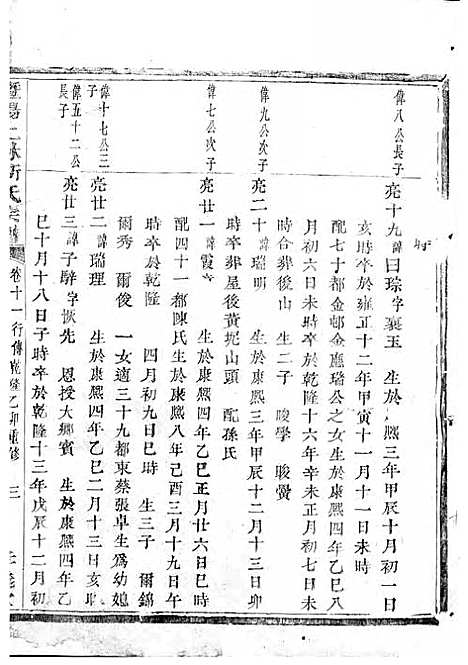 偉八公長子
亮十九諱曰琮字襄玉 生於 熙三年甲辰十月初一日
亥時卒於雍正十二年甲寅十一月十一日未時
配七十都金邨金應璐公之女生於康熙四年乙巳八
月初六日未時卒於乾隆十六年辛未正月初七日未
時合葬後山 生二子 畯學 畯黌
偉九公次子
亮二十諱瑞明 生於康熙三年甲辰十二月十三日卯
時卒葬屋後黃坭山頭 配孫氏
偉七公次子
亮廿一諱霞 生於康熙四年乙巳正月廿六日巳時
配四十一都陳氏生於康熙八年己酉三月十九日午
時卒於乾隆 四月初九日巳時 生三子 爾錦
爾秀 爾俊 一女適三十九都東蔡張卓生爲幼媳
偉十七公三子
亮廿二諱瑞理 生於康熙四年乙巳二月十三日亥
偉五十二公長子
亮廿三諱子辭字恢先 恩授大鄉賓 生於康熙四年乙
巳十月十八日子時卒於乾隆十三年戊辰十二月初
暨陽 氏宗譜 卷十一行傳 乾隆乙卯重修 三